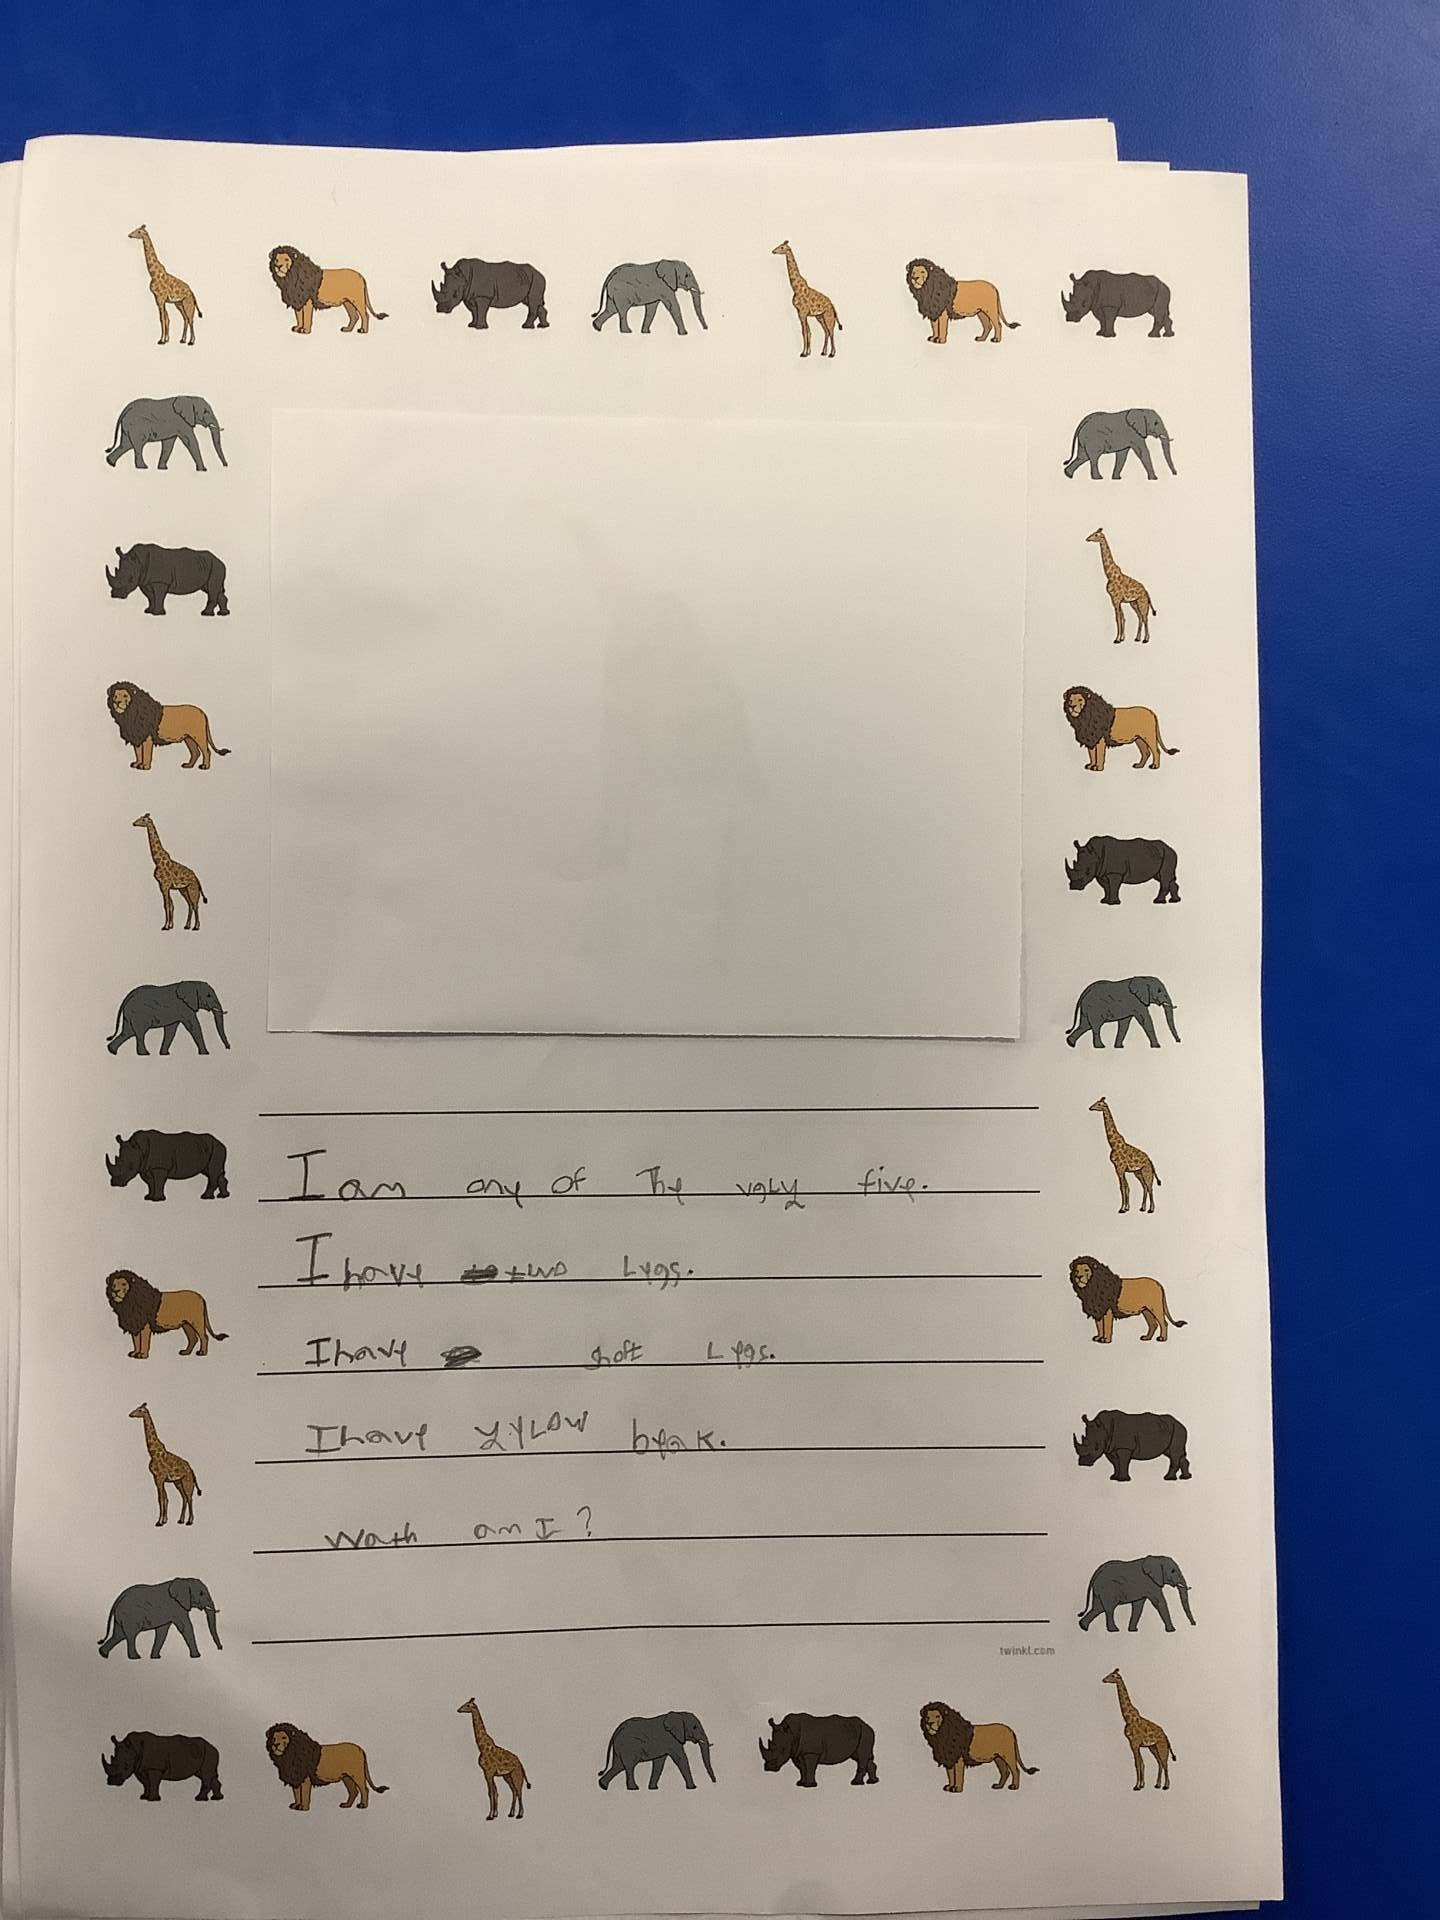 I am one of The ugly five.
I have two Legs.
I have shoft Legs.
I have yeLow beak.
Wath am I?
twinkl.com